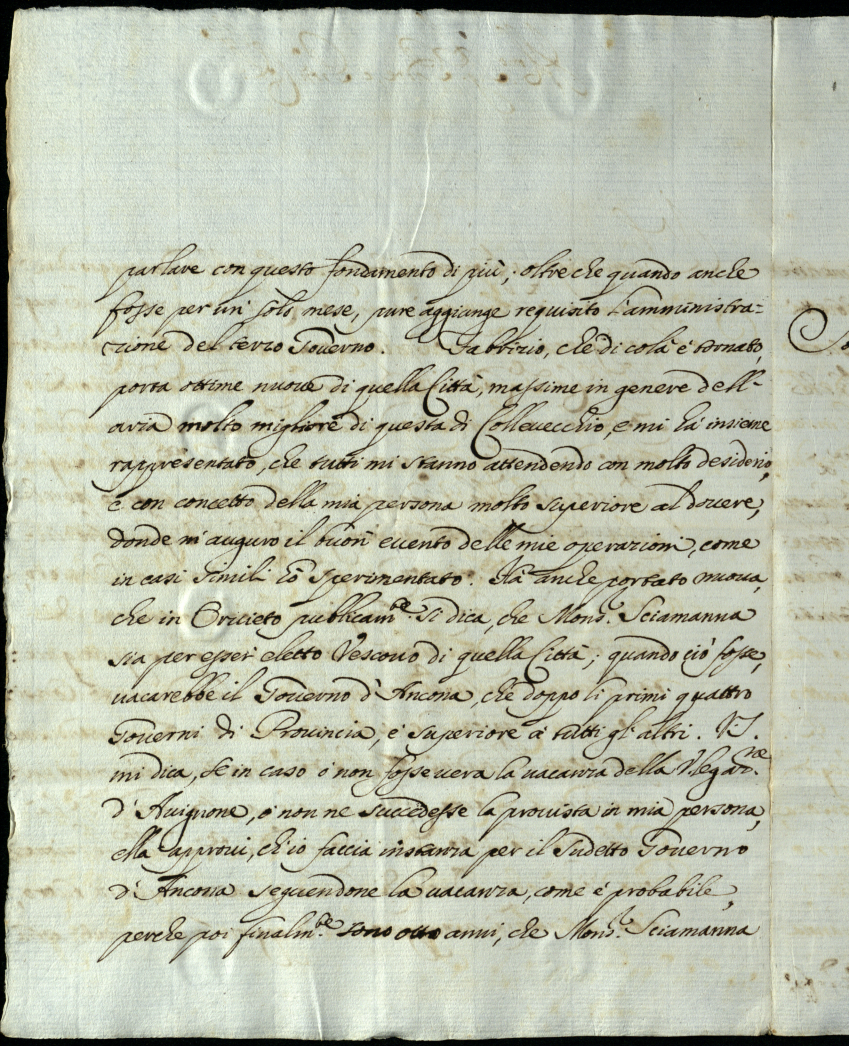 parlare con questo fondamento di più; oltre che quando anche
fosse per un' solo mese, pure aggiunge requisito l'amministra=
zione del terzo Gouerno. Fabrizio, che di colà è tornato,
porta ottime nuoue di quella Città, massime in genere dell-
aria molto migliore di questa di Colleuecchio, e mi hà insieme
rappresentato, che tutti mi stanno attendendo con molto desiderio,
e con concetto della mia persona molto superiore al douere,
donde m'auguro il buon euento delle mie operazioni, come
in casi simili hò sperimentato. Hà anche portato nuoua,
che in Oruieto publicam.te si dica, che Mons.r Sciamanna
sia per esser eletto Vescouo di quella Città; quando ciò fosse,
uacarebbe il Gouerno d'Ancona, che doppo li primi quattro
Gouerni di Prouincia, è superiore à tutti gl'altri. V.S.
mi dica, se in caso ò non fosse uera la uacanza della V.legaz.ne
d'Auignone, ò non ne succedesse la prouista in mia persona,
ella approui, ch'io faccia instanza per il sudetto Gouerno
d'Ancona seguendone la uacanza, come è probabile,
perche poi finalm.te sono otto anni, che Mons.r Sciamanna